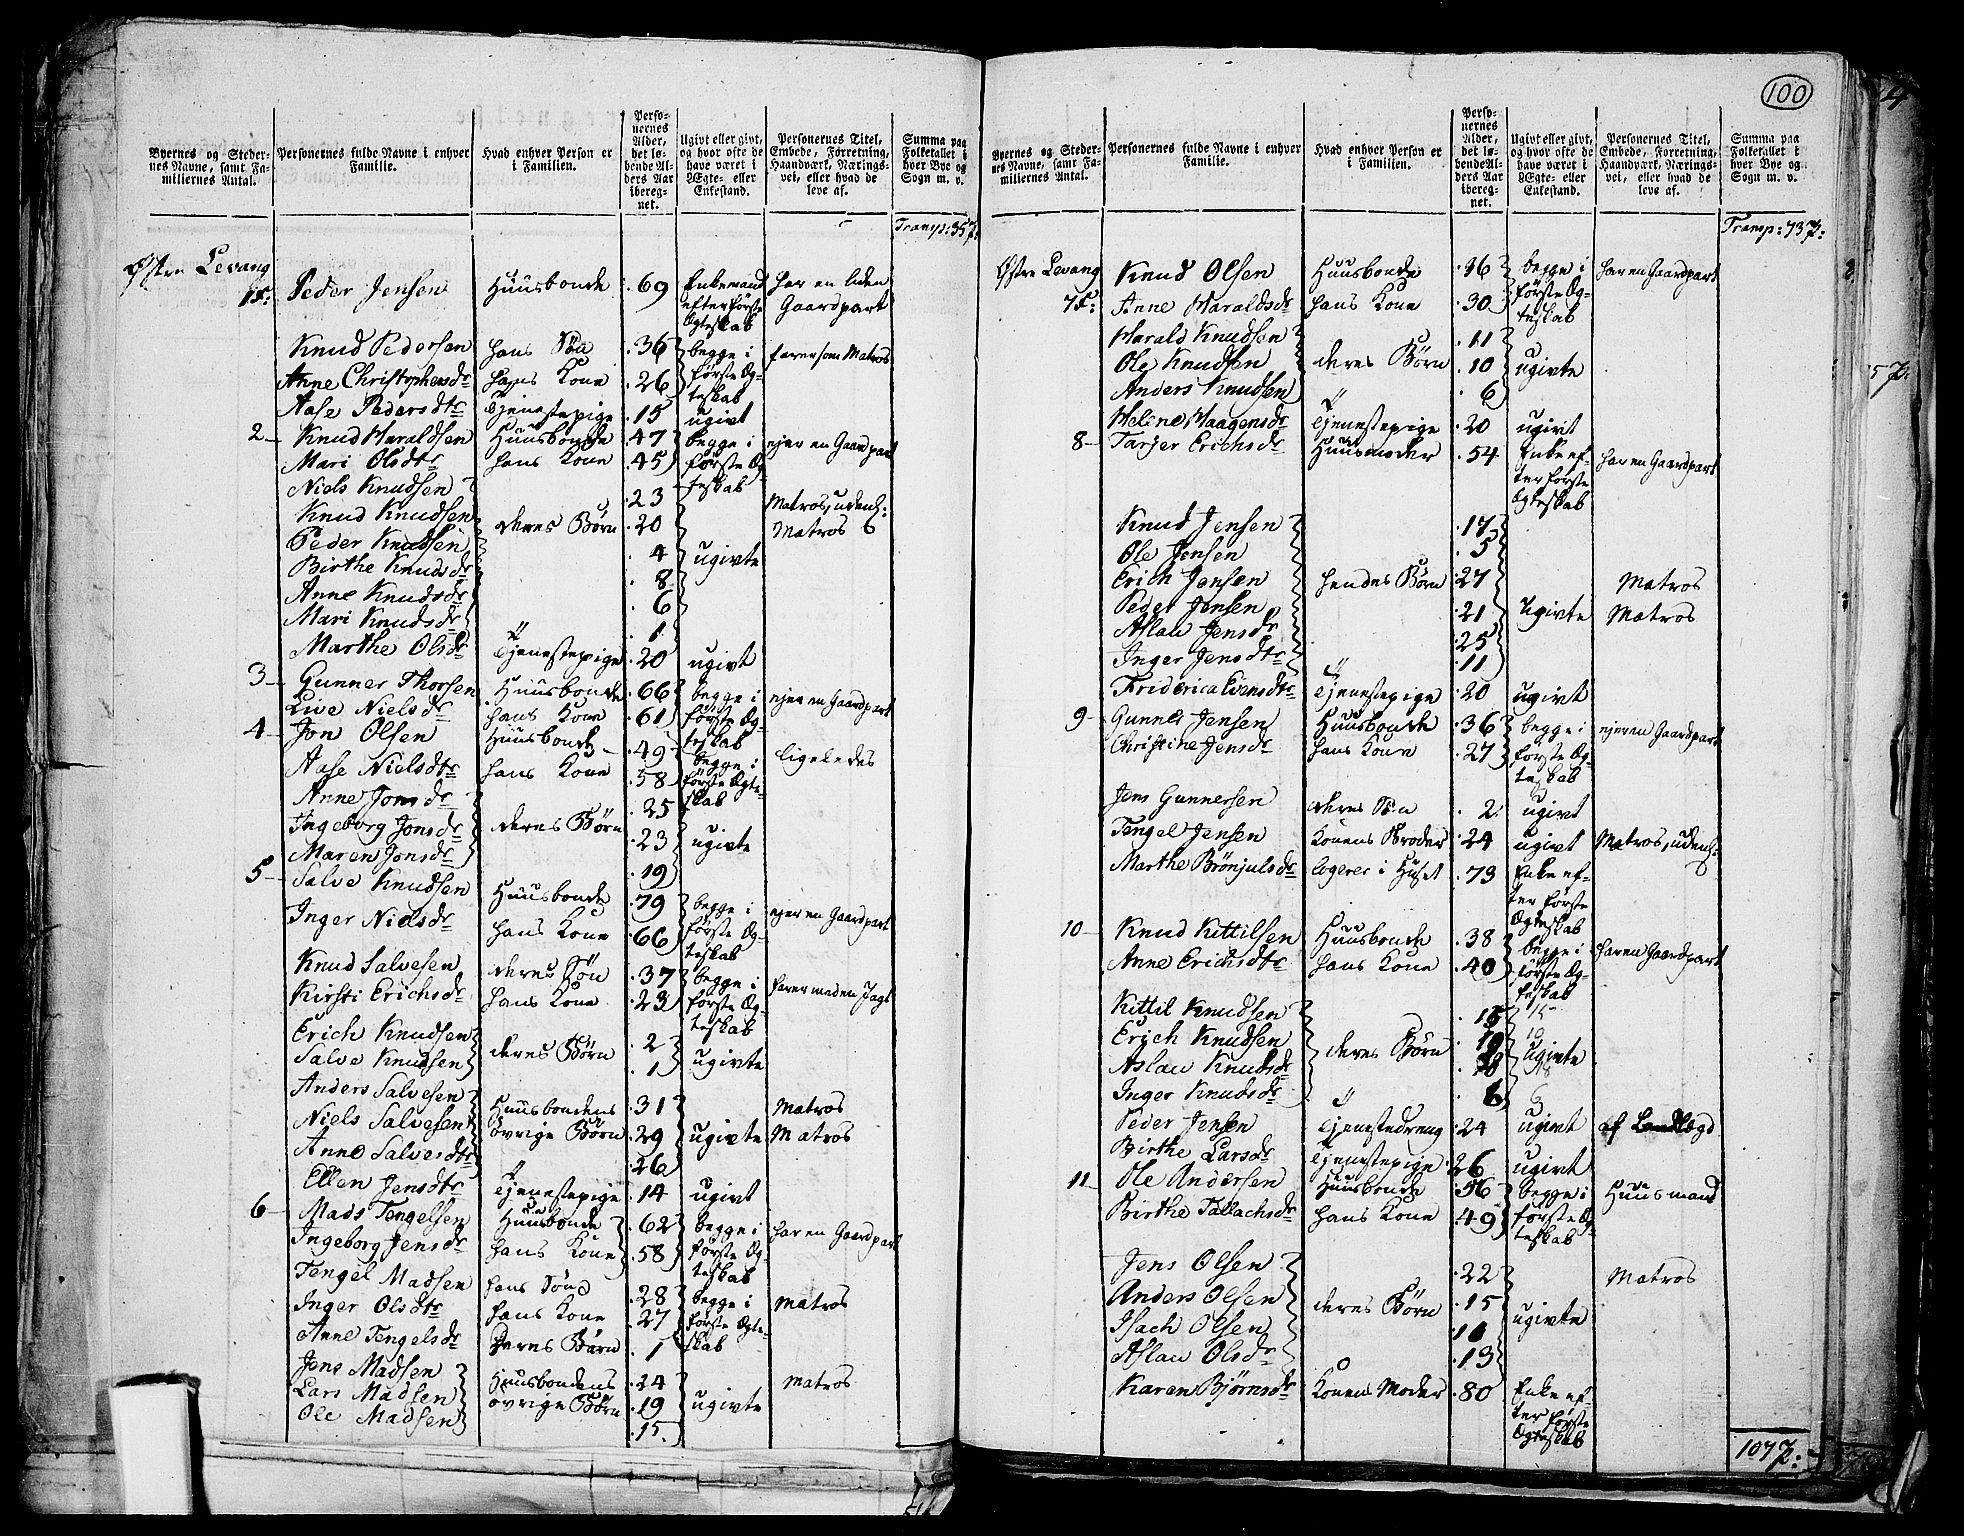 100
Byernes og Steder-nes Navne, samt Fa-miliernes Antal. | Personernes fulde Navne i enhver Familie. | Hvad enhver Person er i Familien. | Perso-nernes Alder, det lø-bende Al-ders Aar ibereg-net. | Ugivt eller givt, og hvor ofte de have været i Ægte- eller Enkestand. | Personernes Titel, Embede, Forretning, Haandværk, Nærings-vei, eller hvad de leve af. | Summa paa Folketallet i hver Bye og Sogn m. v.
Transp: 35 p:
Østre Levang
1 F: Peder Jensen | Huusbonde | 69 | Enkemand efter første Ægteskab | har en liden Gaardpart
Knud Pedersen | hans Søn | 36 | begge i første Æg-teskab | farer som Matros
Anne Christophersdr | hans Kone | 26
Aase Pedersdtr | Tjenestepige | 15 | ugivt
2 Knud Haraldsen | Huusbonde | 47 | begge i første Æg-teskab | ejer en Gaardpart
Mari Olsdtr | hans Kone | 45
Niels Knudsen | 23 | Matros, udenl:
Knud Knudsen | deres Børn | 20 | Matros
Peder Knudsen | 4 | ugivte
Birthe Knudsdr | 8
Anne Knudsdr | 6
Mari Knudsdr | 1
Marthe Olsdr | Tjenestepige | 20 | ugivt
3 Gunner Thorsen | Huusbonde | 66 | begge i første Æg-teskab | ejer en Gaardpart
Live Nielsdr | hans Kone | 61
4 Jon Olsen | Huusbonde | 49 | begge i første Ægte-skab | ligeledes
Aase Nielsdtr | hans Kone | 58
Anne Jonsdr | 25
Ingeborg Jonsdr | deres Børn | 23 | ugivte
Maren Jonsdr | 19
5 Salve Knudsen | Huusbonde | 79 | begge i første Æg-teskab | ejer en Gaardpart
Inger Nielsdr | hans Kone | 66
Knud Salvesen | deres Søn | 37 | begge i første Æg-teskab | farer med en Jagt
Kirsti Erichsdr | hans Kone | 23
Erich Knudsen | deres Børn | 2 | ugivte
Salve Knudsen | 1
Anders Salvesen | Huusbondens | 31 | Matros
Niels Salvesen | øvrige Børn | 29 | ugivte | Matros
Anne Salvesdtr | 26
Ellen Jensdtr | Tjenestepige | 14 | ugivt
6 Mads Tengelsen | Huusbonde | 62 | begge i første Æg-teskab | har en Gaardpart
Ingeborg Jensdr | hans Kone | 58
Tengel Madsen | hans Søn | 28 | begge i første Ægte-skab | Matros
Inger Olsdtr | hans Kone | 27
Anne Tengelsdr | Deres Børn | 1
Jens Madsen | Huusbondens | 24 | Matros
Lars Madsen | øvrige Børn | 19 | ugivte
Ole Madsen | 15
Byernes og Steder-nes Navne, samt Fa-miliernes Antal. | Personernes fulde Navne i enhver Familie. | Hvad enhver Person er i Familien. | Perso-nernes Alder, det lø-bende Al-ders Aar ibereg-net. | Ugivt eller givt, og hvor ofte de have været i Ægte- eller Enkestand. | Personernes Titel, Embede, Forretning, Haandværk, Nærings-vei, eller hvad de leve af. | Summa paa Folketallet i hver Bye og Sogn m. v.
Transp: 73 p:
Østre Levang
7 F: Knud Olsen | Huusbonde | 36 | begge i første Æg-teskab | har en Gaardpart
Anne Haraldsdr | hans Kone | 30
Harald Knudsen | 11
Ole Knudsen | deres Børn | 10 | ugivte
Anders Knudsen | 6
Helene Haagensdr | Tjenestepige | 20 | ugivt
8 Tarjer Erichsdr | Huusmoder | 54 | Enke ef-ter første Ægteskab | har en Gaardpart
Knud Jensen | 17
Ole Jensen | 5
Erich Jensen | hendes Børn | 27 | Matros
Peder Jensen | 21 | Ugivte | Matros
Aslau Jensdr | 25
Inger Jensdtr | 11
Friderica Evensdtr | Tjenestepige | 20 | ugivt
9 Gunner Jensen | Huusbonde | 36 | begge i første Æg-teskab | ejer en Gaardpart
Christine Jensdr | hans Kone | 27
Jens Gunnersen | deres Søn | 2 | ugivt
Tengel Jensen | Konens Broder | 24 | ugivt | Matros, udenl:
Marthe Brønjulsdr | logerer i Huset | 73 | Enke ef-ter første Ægteskab
10 Knud Kittilsen | Huusbonde | 38 | begge i første Æg-teskab | har en Gaardpart
Anne Erichsdtr | hans Kone | 40
Kittil Knudsen | 15 | 15
Erich Knudsen | 10 | 10
Aslau Knudsdr | deres Børn | 18 | ugivte | 18
Inger Knudsdr | 6 | 6
Peder Jensen | Tjenestedreng | 24 | ugivt
Birthe Larsdr | Tjenestepige | 26 | ugivt
11 Ole Andersen | Huusbonde | 56 | begge i første Æg-teskab | Huusmand
Birthe Tallachsdr | hans Kone | 49
Jens Olsen | 22 | Matros
Anders Olsen | deres Børn | 15 | ugivte
Isach Olsen
Aslau Olsdr | 13
Karen Bjørnsdr | Konens Moder | 80 | Enke ef-ter første Ægteskab
107 p: